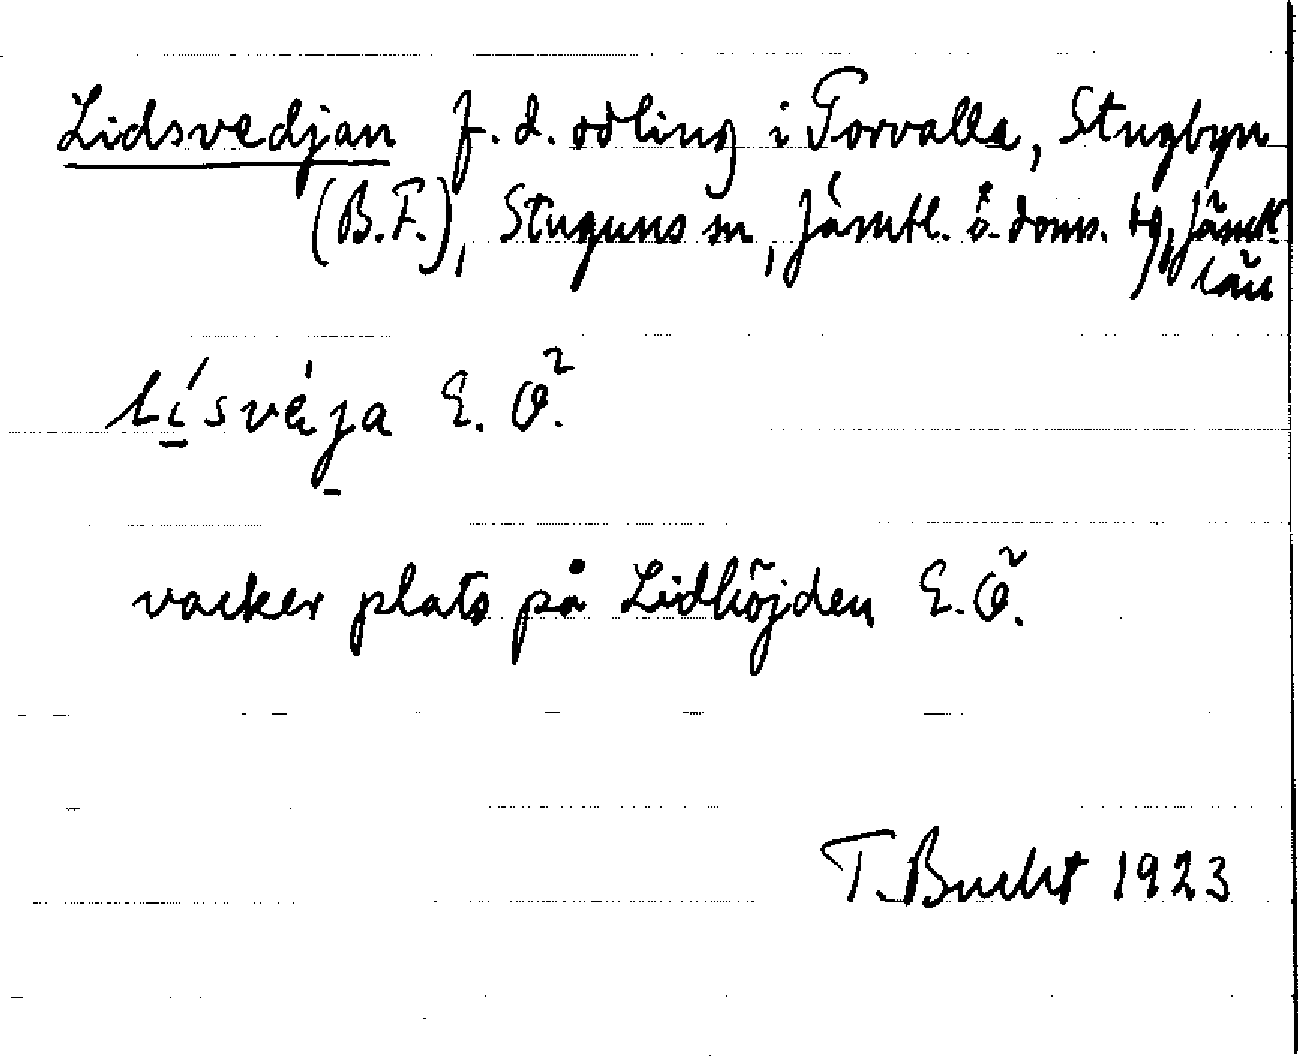 Lidsvedjan f. d. odling i Torvalla, Stugbyn
(B.F.), Stuguns sn, Jämtl. ö. doms. tg, Jämtl.
län
lísvèja E. Ö.
vacker plats på Lidhöjden E. Ö.
T. Bucht 1923